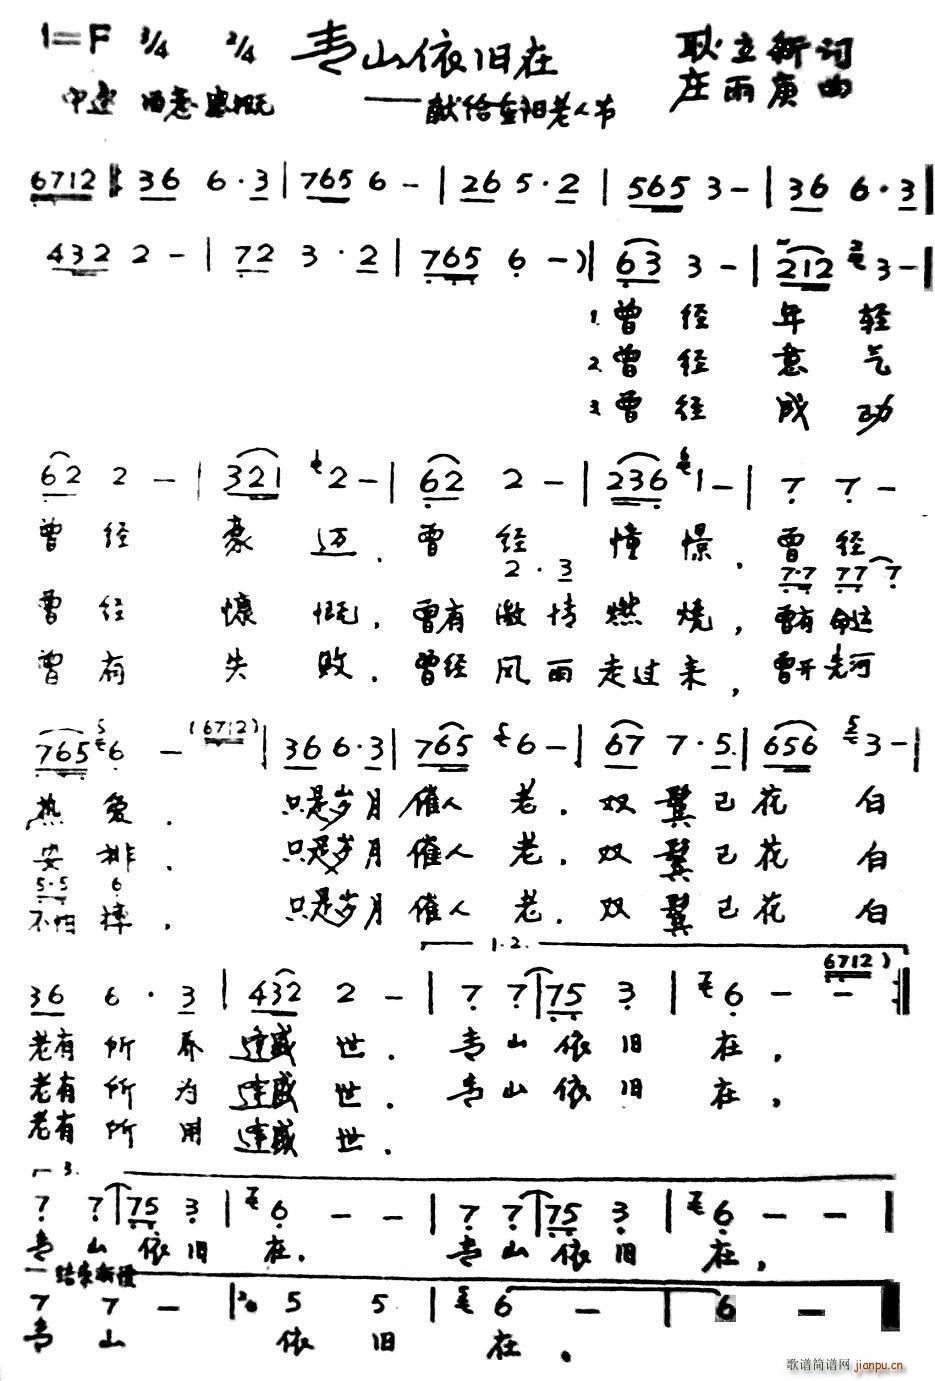 1=F 3/4 2/4 青山依旧在 耿立新词
中速 感慨 ——献给重阳老人节 庄雨庚曲
6712 ‖ 36 6·3 | 765 6 - | 26 5·2 | 565 3 - | 36 6·3 |
432 2 - | 72 3·2 | 765 6 -) | 63 3 - | 212 3 - |
1.曾经年轻
2.曾经意气
3.曾经成功
62 2 - | 321 2 - | 62 2 - | 236 1 - | 7 7 -
曾经豪迈.曾经憧憬.曾经
2·3 7·7 77 7
曾经慷慨,曾有激情燃烧,曾有命运
曾有失败.曾经风雨走过来,曾开先河
765 6 - (6712) | 36 6·3 | 765 6 - | 67 7·5 | 656 3 - |
热爱.只是岁月催人老.双鬓已花白
安排.只是岁月催人老.双鬓已花白
5·5 6
不怕摔.只是岁月催人老.双鬓已花白
1.2.
36 6·3 | 432 2 - | 7 7 | 75 3 | 6 - - 6712) :‖
老有所养逢盛世.青山依旧在.
老有所为逢盛世.青山依旧在,
老有所用逢盛世.
3.
7 7 | 75 3 | 6 - - | 7 7 | 75 3 | 6 - - |
青山依旧在.青山依旧在,
7 7 - | 5 5 | 6 - | 6 -
青山依旧在.
歌谱简谱网 jianpu.cn